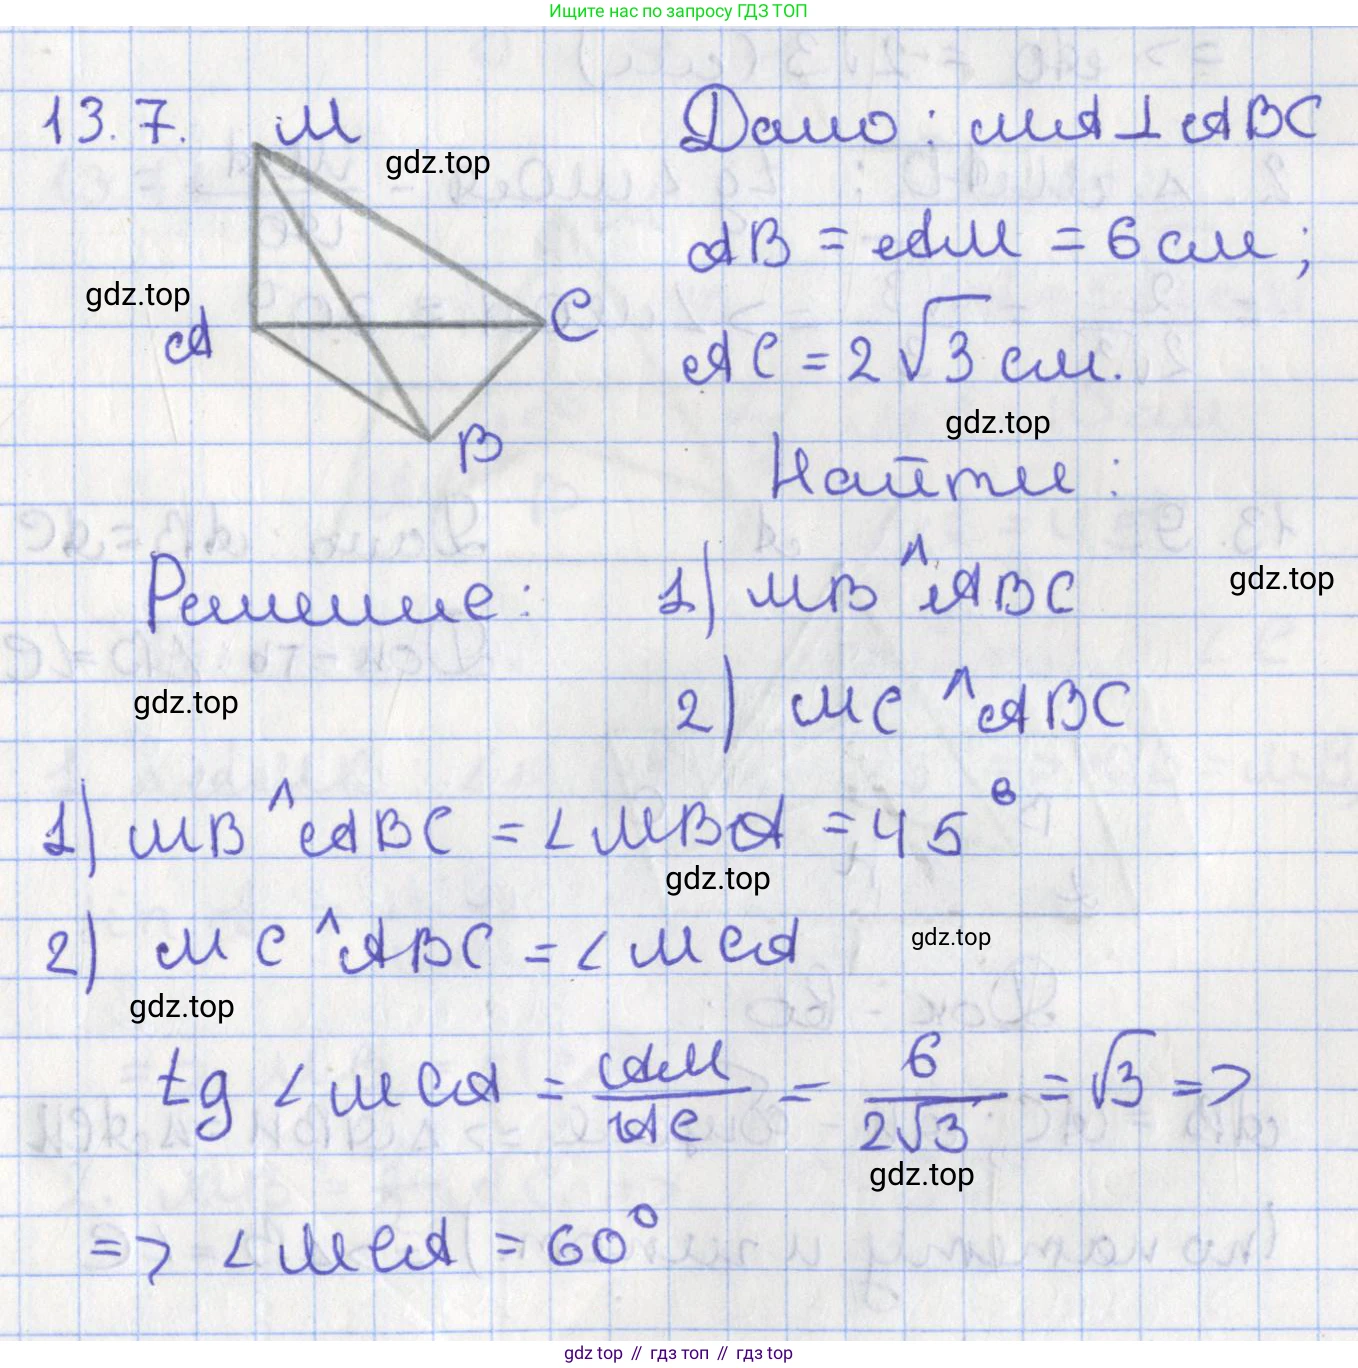 Ищите нас по запросу ГДЗ ТОП
13.7. M
Дано: MA ⊥ ABC
gdz.top
AB = AM = 6 см;
gdz.top
A
C
AC = 2√3 см.
gdz.top
B
Найти:
Решение:
1) MB ^ ABC
gdz.top
gdz.top
2) MC ^ ABC
1) MB ^ ABC = ∠MBA = 45°
gdz.top
2) MC ^ ABC = ∠MCA
gdz.top
gdz.top
tg ∠MCA = AM/AC = 6/2√3 = √3 =>
gdz.top
=> ∠MCA = 60°
gdz top // гдз топ // gdz top